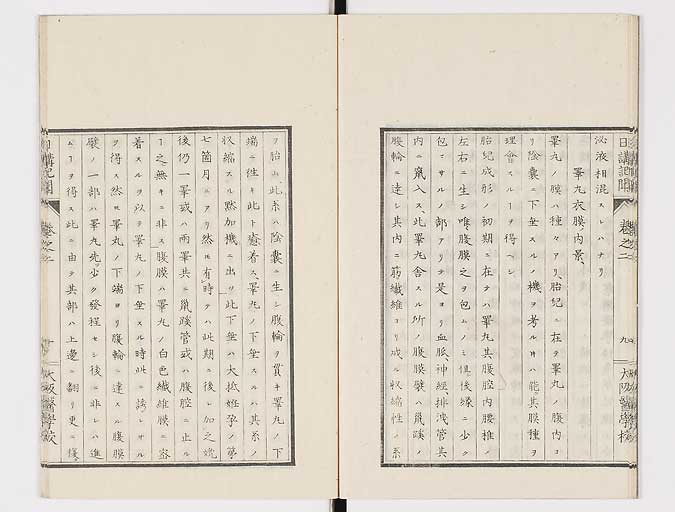 日講記聞 卷之二 九 大坂醫學校
泌液相混スレハナリ
睾丸衣膜ノ内景、
睾丸ノ膜ハ種々アリ、胎兒ニ在テ睾丸ノ腹内ヨ
リ陰囊ニ下垂スルノ機ヲ考ルキハ能其膜種ヲ
理會スルヿヲ得ヘシ
胎兒成形ノ初期ニ在テハ睾丸其腹腔内腰椎ノ
左右ニ生シ唯腹膜之ヲ包ムノミ倶後緣ニ少ク
包マサルノ部アリテ是ヨリ血脈神經排洩管其
内ニ竄入ス、此睾丸舍スル所ノ腹膜襞ハ鼠蹊ノ
腹輪ニ達シ其内ニ筋纖維ヨリ成ル收縮性ノ系
ヲ胎ム、此系ハ陰囊ニ生シ腹輪ヲ貫キ睾丸ノ下
端ニ徃キ此ト癒着ス、睾丸ノ下垂スルハ其系ノ
收縮スル點加機ニ出ツ、此下垂ハ大抵姙孕ノ第
七箇月ニアリ然𪜈有時テハ此期ニ後レ加之娩
後仍一睾或ハ兩睾共ニ鼠蹊管或ハ腹腔ニ止ル
ヿ之無キニ非ス腹膜ハ睾丸ノ白色纖維膜ニ密
着スルヲ以テ睾丸ノ下垂スル時此ニ誘レサル
ヲ得ス然𪜈睾丸ノ下端ヨリ腹輪ニ達スル腹膜
襞ノ一部ハ睾丸先少ク發程セシ後ニ非レハ進
ムヿヲ得ス此ニ由テ其部ハ上邊ニ翻リ更ニ後
日講記聞 卷之二 十 大坂醫學校